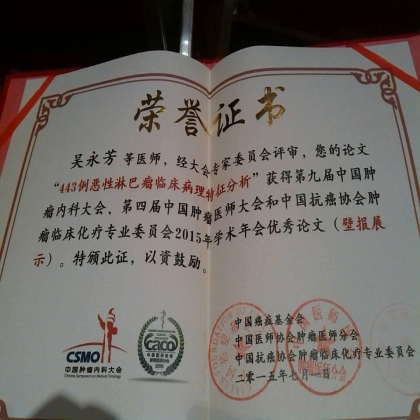 荣誉证书
吴永芳 等医师，经大会专家委员会评审，您的论文
“443例恶性淋巴瘤临床病理特征分析”获得第九届中国肿
瘤内科大会、第四届中国肿瘤医师大会和中国抗癌协会肿
瘤临床化疗专业委员会2015年学术年会优秀论文（壁报展
示）。特颁此证，以资鼓励。
中国癌症基金会
中国医师协会肿瘤医师分会
中国抗癌协会肿瘤临床化疗专业委员会
二〇一五年七月二日
CSMO
中国肿瘤内科大会
Chinese Symposium on Medical Oncology
CACO